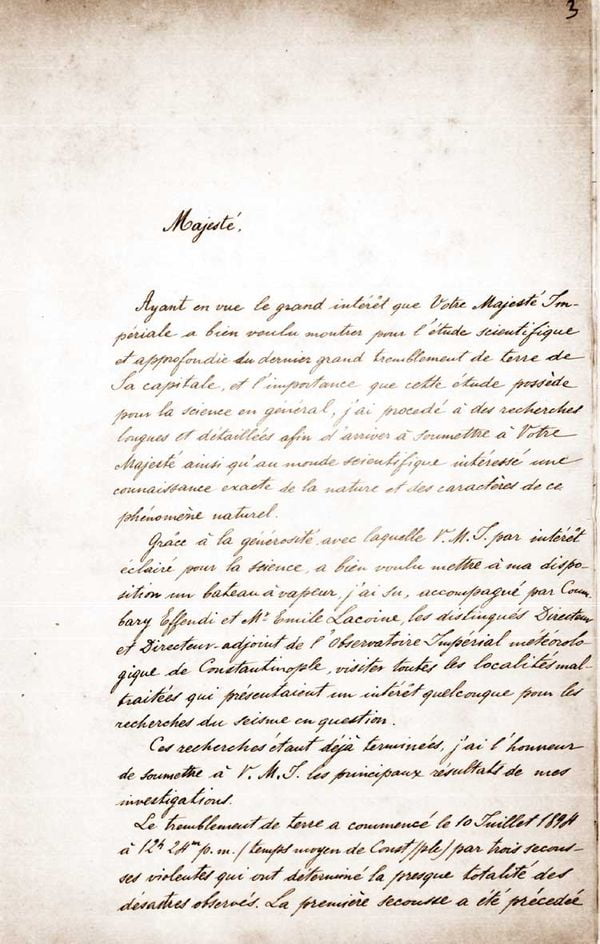 3
Majesté,
Ayant en vue le grand intérêt que Votre Majesté Im-
périale a bien voulu montrer pour l'étude scientifique
et approfondie du dernier grand tremblement de terre de
Sa capitale, et l'importance que cette étude possède
pour la science en général, j'ai procedé à des recherches
longues et détaillées afin d'arriver à soumettre à Votre
Majesté ainsi qu'au monde scientifique intéressé une
connaissance exacte de la nature et des caractères de ce
phénomène naturel.
Grâce à la générosité avec laquelle V. M. I. par intérêt
éclairé pour la science, a bien voulu mettre à ma dispo-
sition un bateau à vapeur, j'ai su, accompagné par Coum-
bary Effendi et Mr Emile Lacoine, les distingués Directeur
et Directeur-adjoint de l'Observatoire Impérial météorolo-
gique de Constantinople, visiter toutes les localités mal-
traitées qui présentaient un intérêt quelconque pour les
recherches du seisme en question.
Ces recherches étant déjà terminées, j'ai l'honneur
de soumettre à V. M. I. les principaux résultats de mes
investigations.
Le tremblement de terre a commencé le 10 Juillet 1894
à 12h 24m p. m. (temps moyen de Const/ple) par trois secous-
ses violentes qui ont déterminé la presque totalité des
désastres observés. La première secousse a été précédée